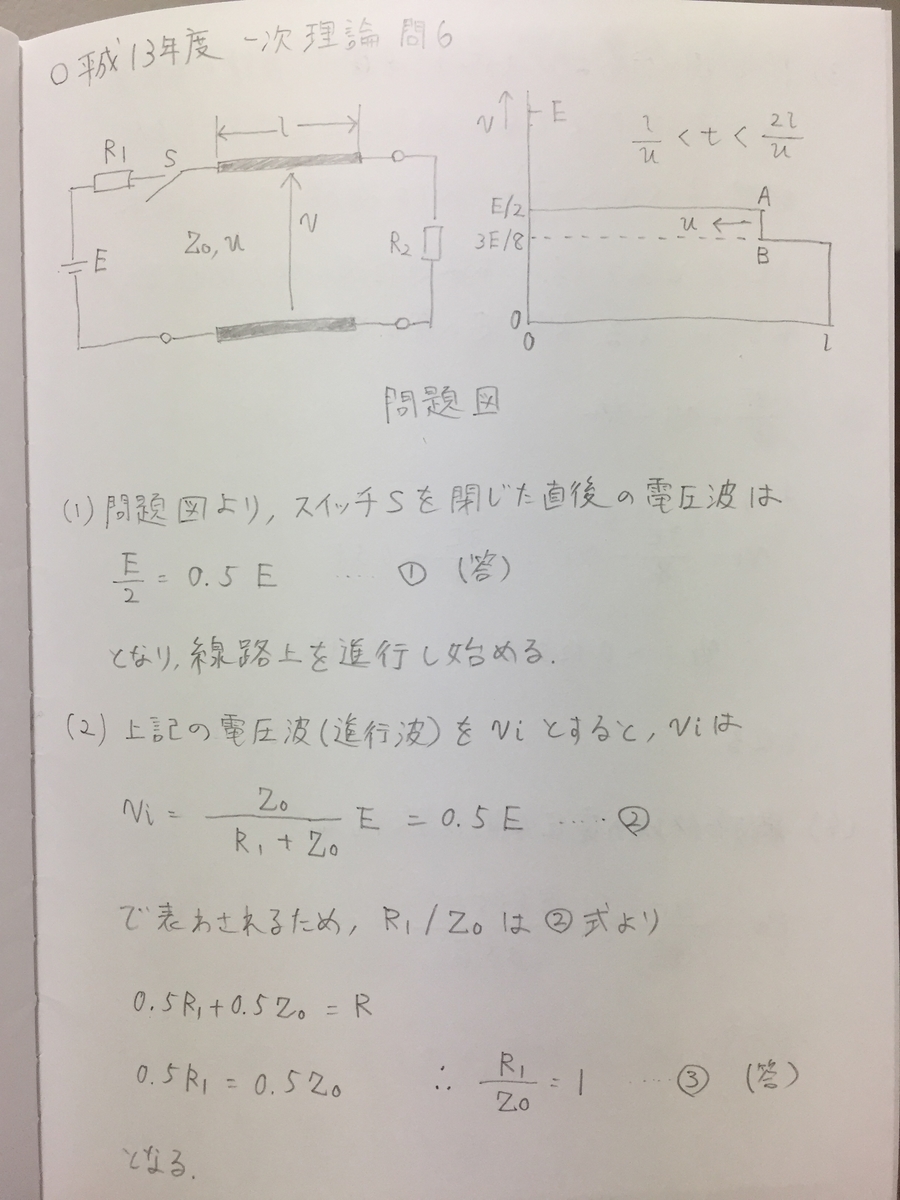 ○平成13年度 一次理論 問6
l
R1
S
E
Z0, u
v
R2
v
E
l/u < t < 2l/u
E/2
A
u
3E/8
B
0
0
l
問題図
(1) 問題図より, スイッチSを閉じた直後の電圧波は
E/2 = 0.5 E ‥‥ ① (答)
となり, 線路上を進行し始める.
(2) 上記の電圧波(進行波)をviとすると, viは
vi = Z0/(R1+Z0) E = 0.5 E ‥‥ ②
で表わされるため, R1/Z0は②式より
0.5R1+0.5Z0 = R
0.5R1 = 0.5Z0 ∴ R1/Z0 = 1 ‥‥ ③ (答)
となる.